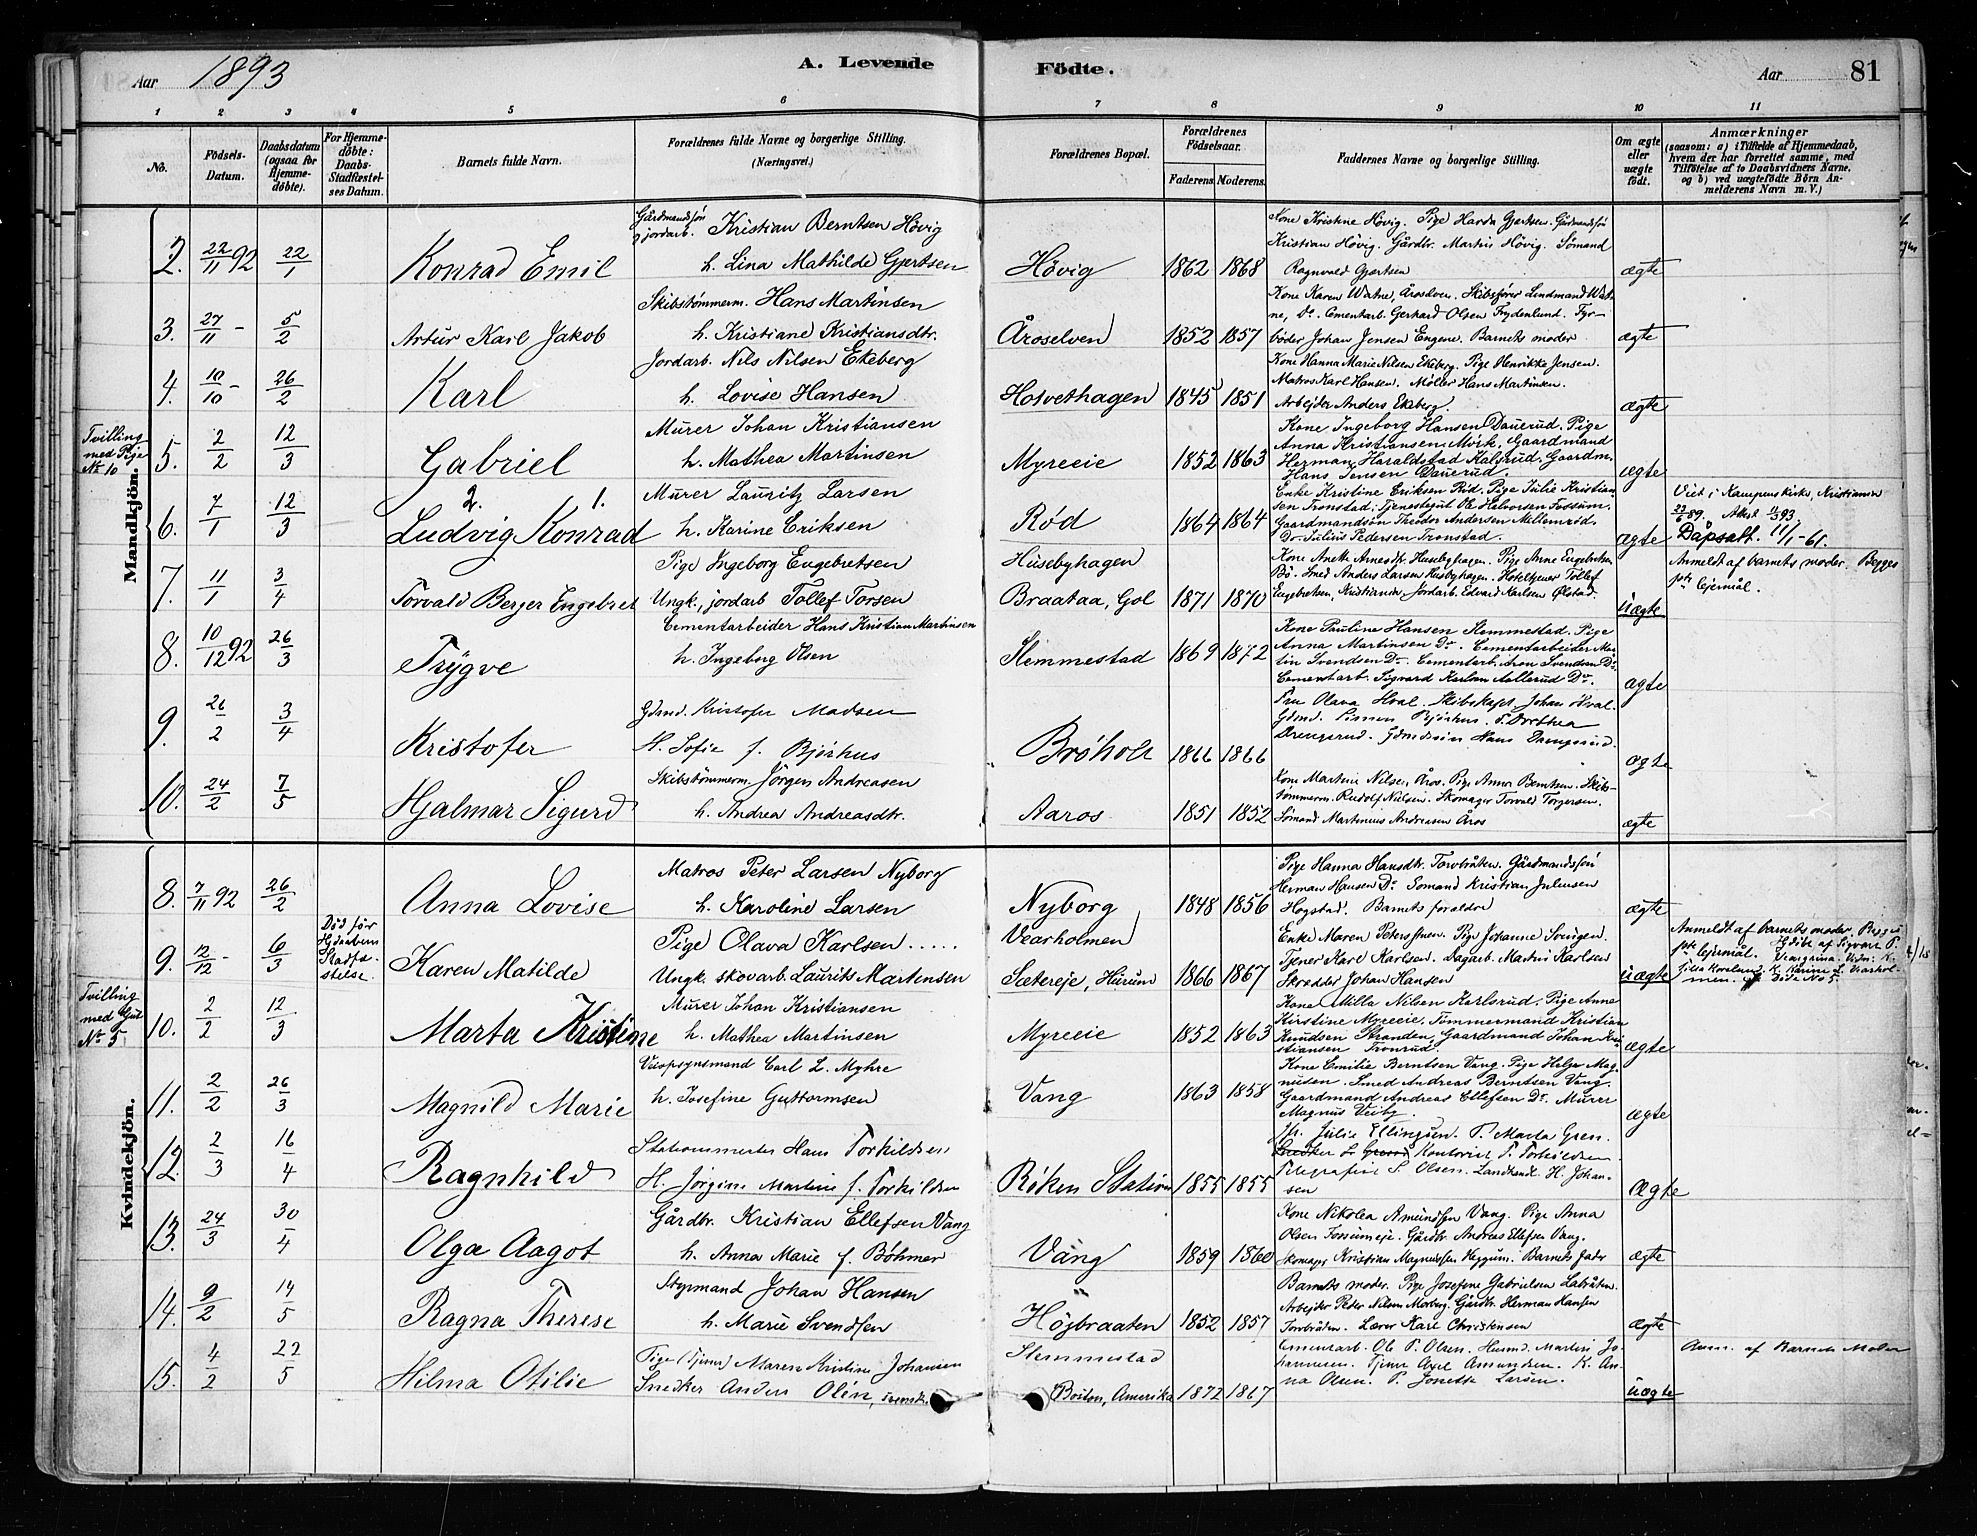 Aar 1893
A. Levende Födte.
Aar
81
1 2 3 4 5 6 7 8 9 10 11
No.
Födsels-Datum.
Daabsdatum (ogsaa for Hjemme-döbte).
For Hjemme-döbte: Daabs-Stadfæstel-ses Datum.
Barnets fulde Navn.
Forældrenes fulde Navne og borgerlige Stilling. (Næringsvei.)
Forældrenes Bopæl.
Forældrenes Födselsaar.
Faderens. Moderens.
Faddernes Navne og borgerlige Stilling.
Om ægte eller uægte födt.
Anmærkninger
(saasom: a) i Tilfælde af Hjemmedaab, hvem der har forrettet samme, med Tilföielse af to Daabsvidners Navne, og b) ved uægtefödte Börn An-melderens Navn m. V.)
Mandkjön.
2. 22/11 92 22/1 Konrad Emil
Gårdmandssön
jordarb. Kristian Berntsen Hövig
h. Lina Mathilde Gjertsen
Hövig 1862 1868
Kone Kristine Hövig. Pige Harda Gjertsen. Gårdmandssö
Kristian Hövig. Gårdbr. Martin Hövig. Sömand
Ragnvald Gjertsen
ægte
3. 27/11 - 5/2 Artur Karl Jakob
Skibstömmerm. Hans Martinsen
h. Kristiane Kristiansdtr.
Åroselven 1852 1857
Kone Karen Watne, Åroselven. Skibsförer Lindmand Wat-
ne, Do. Cementarb. Gerhard Olsen Frydenlund. Fyr-
böder Johan Jensen Engene. Barnets moder
ægte
4. 10/10 - 26/2 Karl
Jordarb. Nils Nilsen Ekeberg
h. Lovise Hansen
Holvethagen 1845 1851
Kone Hanna Marie Nilsen Ekeberg. Pige Henrikke Jensen.
Matros Karl Hansen. Møller Hans Martinsen.
Arbejder Anders Ekeberg.
ægte
Tvilling med Pige No 10
5. 2/2 12/3 Gabriel
Murer Johan Kristiansen
h. Mathea Martinsen
Myreeie 1852 1863
Kone Ingeborg Hansen Dauerud. Pige
Anna Kristiansen Mörk. Gaardmand
Herman Haraldstad Kalsrud. Gaardm.
Hans Jensen Dauerud.
ægte
6. 7/1 12/3 2. 1.
Ludvig Konrad
Murer Lauritz Larsen
h. Karine Eriksen
Rød 1864 1864
Enke Kristine Eriksen Rød. Pige Julie Kristian
sen Tronstad. Tjenestegut Ole Halvorsen Fossum.
Gaardmandsön Theodor Andersen Mellemrød.
Do Julius Pedersen Tronstad.
ægte
Viet i Kampens kirke, Kristiania
22/6 89. Attest 11/3 93
Dåpsatt. 11/1-61.
7. 11/1 3/4 Torvald Berger Engebret
Pige Ingeborg Engebretsen
Ungk., jordarb Tollef Torsen
Husebyhagen
Braataa, Gol 1871 1870
Kone Anette Arnesdtr. Husebyhagen. Pige Anne Engebretsen
Bö. Smed Anders Larsen Husbyhagen. Hoteltjener Tollef
Engebretsen, Kristiania. Jordarb. Edvard Karlsen Økstad.
uægte
Anmeldt af barnets moder. Begges
1ste lejermål.
8. 10/12 92 26/3 Trygve
Cementarbeider Hans Kristian Martinsen
h. Ingeborg Olsen
Slemmestad 1869 1872
Kone Pauline Hansen Slemmestad. Pige
Anna Martinsen Do. Cementarbeider Mar-
tin Svendsen Do. Cementarb. Aron Svendsen Do.
Cementarb. Sigvard Karlsen Aallerud Do.
ægte
9. 26/2 3/4 Kristofer
Gdmd. Kristofer Madsen
H. Sofie f. Bjørhus
Brøholt 1866 1866
Fru Olava Hval. Skibskapt. Johan Hval.
Gdmd. Simen Bjørhus. F. Dorthea
Drengsrud. Gdmdsön Hans Drengsrud.
ægte
10. 24/2 7/5 Hjalmar Sigurd
Skibstömmerm. Jörgen Andreasen
h. Andrea Andreasdtr.
Aaros 1851 1852
Kone Martine Nilsen, Åros. Pige Anna Berntsen. Skibs-
tömmerm. Rudolf Nilsen. Skomager Torvald Torgersen.
Sömand Martinius Andreasen Åros
ægte
Kvindekjön.
8. 7/11 92 26/2 Anna Lovise
Matros Peter Larsen Nyborg
h. Karoline Larsen
Nyborg 1848 1856
Pige Hanna Hansdtr. Torvbråten. Gårdmandssön
Herman Hansen Do. Sömand Kristian Juliussen
Hogstad. Barnets foraldre
ægte
9. 12/12 - 6/3
Död för Hjdaabens Stadfæ-stelse.
Karen Matilde
Pige Olava Karlsen .....
Ungk. skovarb. Laurits Martensen
Vearholmen
Sætereje, Hurum 1866 1867
Enke Maren Peterssen. Pige Johanne
Tjener Karl Karlsen. Dagarb. Martin Karlsen
Skredder Johan Hansen
uægte
Anmeldt af barnets moder. Begges
1ste lejermål. Hjdöbt af Sigvart P.
Död No 5.
Tvilling med Gut No 5
10. 2/2 12/3 Marta Kristine
Murer Johan Kristiansen
h. Mathea Martinsen
Myreeie 1852 1863
Kone Milla Nilsen Karlsrud. Pige Anne
Kirstine Myreeie. Tømmermand Kristian
Knudsen Stranden. Gaardmand Johan Kri
stiansen Tronrud.
ægte
11. 2/2 26/3 Magnild Marie
Veiopsynsmand Carl L. Myhre
h. Josefine Guttormsen
Vang 1863 1858
Kone Emilie Berntsen Vang. Pige Helga Mag
nusen. Smed Andreas Berntsen Vang.
Gaardmand Andreas Ellefsen Do. Murer
Magnus Veiby.
ægte
12. 2/3 16/4 Ragnhild
Stationsmester Hans Torkildsen
H. Jörgine Martine f. Torkildsen
Röken Station 1855 1855
Fr. Julie Ellingsen. P. Marta Gren.
Kontorist T. Torkildsen
Telegrafist S Olsen. Landhandl. H. Johan-
sen
ægte
13. 24/3 30/4 Olga Aagot
Gårdbr. Kristian Ellefsen Vang
h. Anna Marie f. Böhmer
Vang 1859 1860
Kone Nikolea Amundsen Vang. Pige Anna
Olsen Fossumeje. Gårdbr Andreas Ellefsen Vang.
Skomager Kristian Magnussen Heggum. Barnets fader
ægte
14. 9/2 14/5 Ragna Therese
Styrmand Johan Hansen
h. Marie Svendsen
Höjbraaten 1852 1857
Barnets moder. Pige Josefine Gabrielsen Labråten.
Arbejder Peter Nilsen Morberg. Gårdbr. Herman Hansen
Torvbråden. Lærer Karl Christensen
ægte
15. 4/2 22/5 Hilma Otilie
Pige (Tjener) Maren Kristine Johansen
Snedker Anders Olin, svensk.
Slemmestad
Boston, Amerika 1872 1867
Cementarb. Ole P. Olsen. Husmd. Martin Jo-
hannesen. Tjener Axel Amundsen. K. An-
na Olsen. P. Jonette Larsen.
uægte
Anm. af Barnets Moder